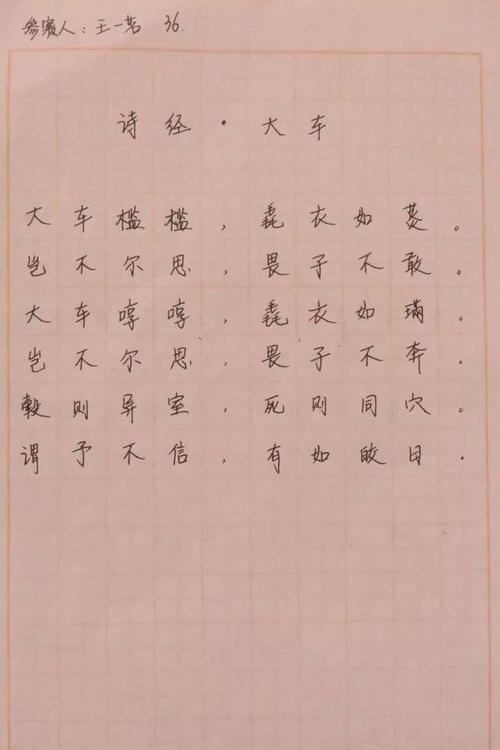 参赛人：王一茗 36.
诗经·大车
大车槛槛，毳衣如菼。
岂不尔思，畏子不敢。
大车啍啍，毳衣如璊。
岂不尔思，畏子不奔。
榖则异室，死则同穴。
谓予不信，有如皎日.